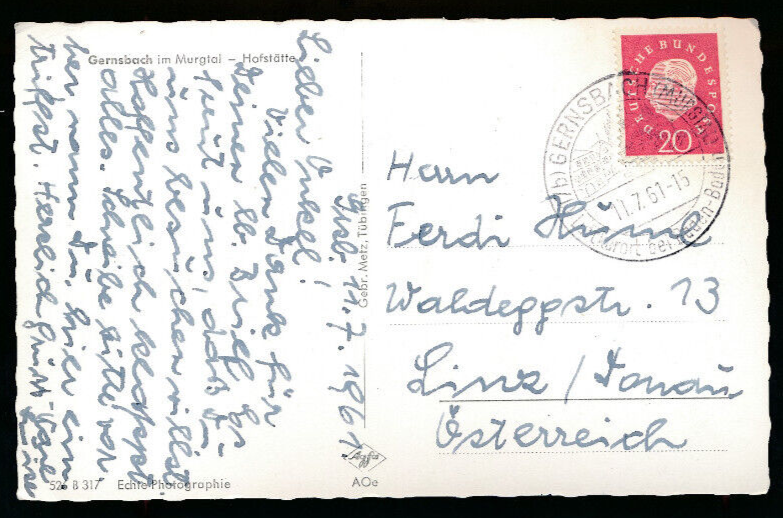 Gernsbach im Murgtal – Hofstätte
Gsb. 11.7.1961.
Lieber Onkel!
Vielen Dank für
Deinen lb. Brief. Es
freut uns, daß Du
uns besuchen willst.
Hoffentlich klappt
alles. Schreibe bitte vor
her wann Du, hier ein
triffst. Herzlich grüßt
526 B 317 Echte Photographie
Gebr. Metz, Tübingen
Agfa
AOe
DEUTSCHE BUNDESPOST
20
(17b) GERNSBACH (MURGTAL)
11.7.61-15
Luftkurort bei Baden-Baden
Herrn
Ferdi Hume
Waldeggstr. 13
Linz / Donau
Österreich